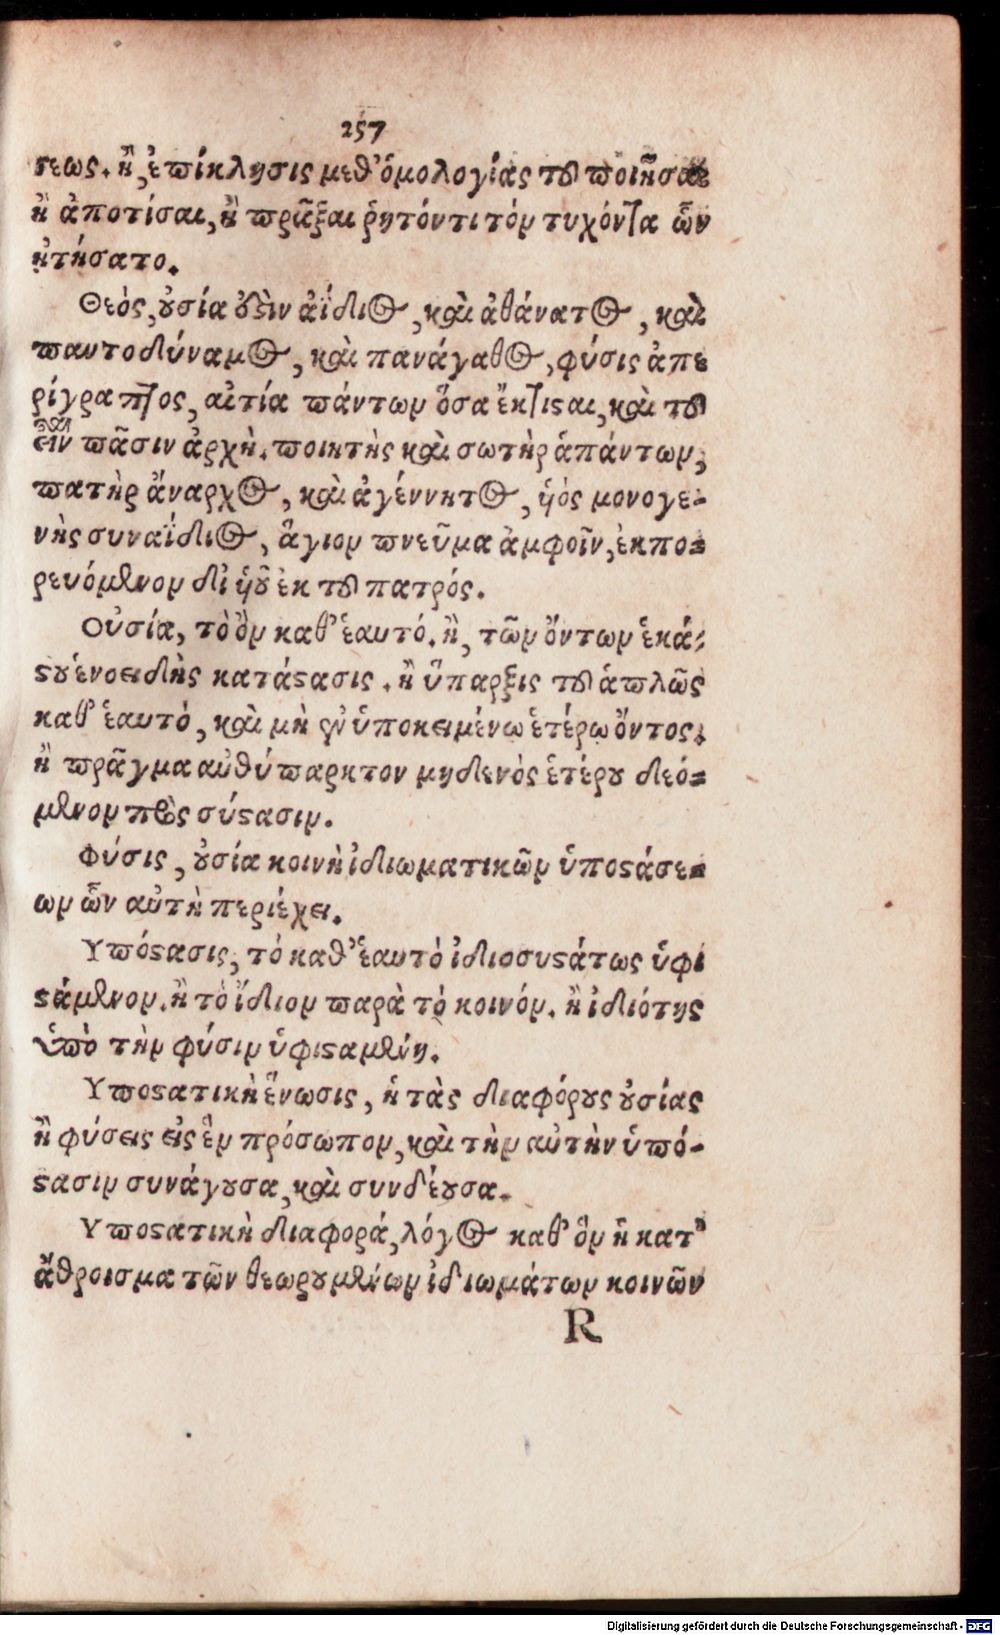 257
ϛεως. ἢ, ἐπίκλησις μεθ' ὁμολογίας τȣ͂ ποιῆσαι
ἢ ἀποτίσαι, ἢ πρᾶξαι ῥητόν τι τὸν τυχόντα ὧν
ᾐτήσατο.
Θεὸς, ȣ̓σία ȣ̓δὲν ἀΐδιος, καὶ ἀθάνατος, καὶ
παντοδύναμος, καὶ πανάγαθος, φύσις ἀπε
ρίγραπτος, αἰτία πάντων ὅσα ἔκτιϛαι, καὶ τȣ͂
εἶναι πᾶσιν ἀρχὴ. ποιητὴς καὶ σωτὴρ ἁπάντων,
πατὴρ ἄναρχος, καὶ ἀγέννητος, ὑὸς μονογε-
νὴς συναΐδιος, ἅγιον πνεῦμα ἀμφοῖν, ἐκπο-
ρευόμενον δι' ὑȣ͂ ἐκ τȣ͂ πατρός.
Οὐσία, τὸ ὂν καθ' ἑαυτό. ἢ, τῶν ὄντων ἑκά-
ϛȣ ἑνοειδὴς κατάϛασις. ἢ ὕπαρξις τȣ͂ ἁπλῶς
καθ' ἑαυτὸ, καὶ μὴ ἐν ὑποκειμένω ἑτέρω ὄντος.
ἢ πρᾶγμα αὐθύπαρκτον μηδενὸς ἑτέρȣ δεό-
μενον πρὸς σύϛασιν.
Φύσις, ȣ̓σία κοινὴ ἰδιωματικῶν ὑποϛάσε-
ων ὧν αὐτὴ περιέχει.
Υπόϛασις, τὸ καθ' ἑαυτὸ ἰδιοσυϛάτως ὑφι
ϛάμενον. ἢ τὸ ἴδιον παρὰ τὸ κοινόν. ἢ ἰδιότης
ὑπὸ τὴν φύσιν ὑφιϛαμένη.
Υποϛατικὴ ἕνωσις, ἡ τὰς διαφόρȣς ȣ̓σίας
ἢ φύσεις εἰς ἓν πρόσωπον, καὶ τὴν αὐτὴν ὑπό-
ϛασιν συνάγȣσα, καὶ συνδέȣσα.
Υποϛατικὴ διαφορά, λόγος καθ' ὃν ἡ κατ'
ἄθροισμα τῶν θεωρȣμένων ἰδιωμάτων κοινῶν
R
Digitalisierung gefördert durch die Deutsche Forschungsgemeinschaft - DFG